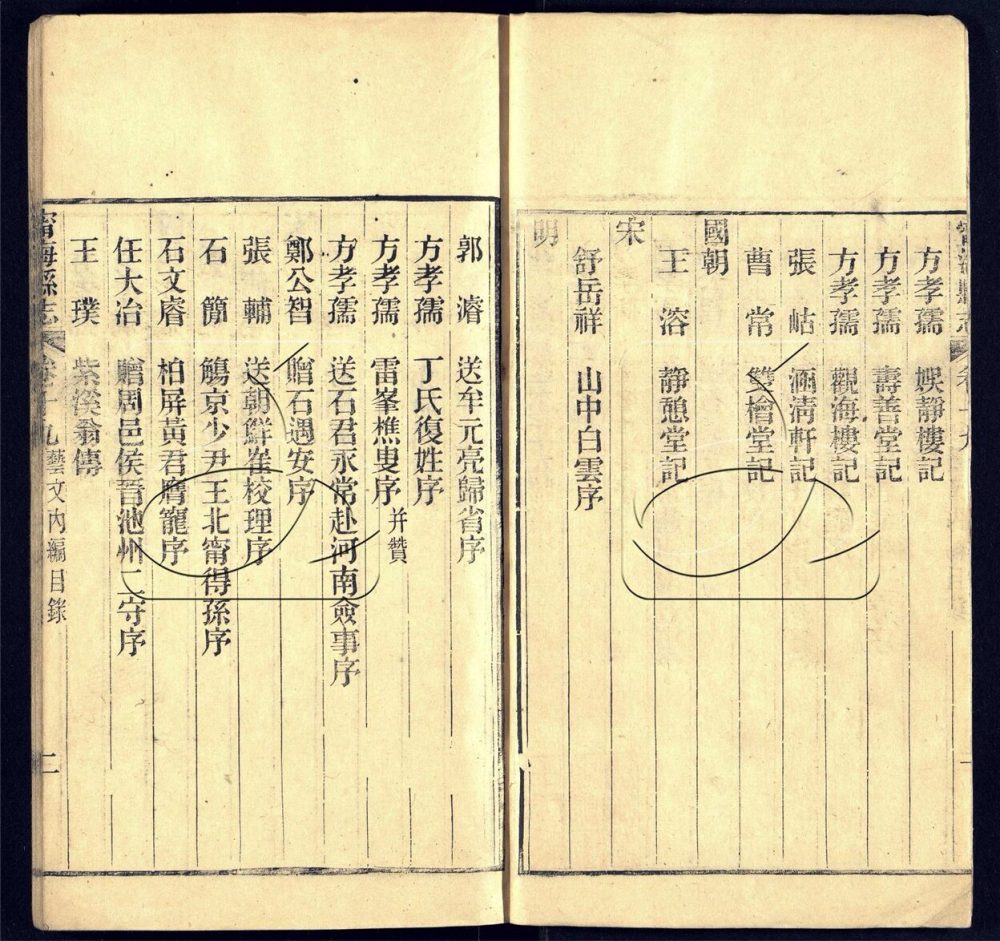 方孝孺 娛靜樓記
方孝孺 壽善堂記
方孝孺 觀海樓記
張岵 湎清軒記
曹常 雙檜堂記
國朝
王溶 靜憩堂記
宋
舒岳祥 山中白雲序
明
郭濬 送牟元亮歸省序
方孝孺 丁氏復姓序
方孝孺 雷峯樵叟序 并贊
方孝孺 送石君永常赴河南僉事序
鄭公智 贈石遇安序
張輔 送朝鮮崔校理序
石簡 觴京少尹王北甯得孫序
石文睿 柏屏黃君膺寵序
任大冶 贈周邑侯晉池州二守序
王璞 紫溪翁傳
甯海縣志 卷十九 藝文內編目錄 二